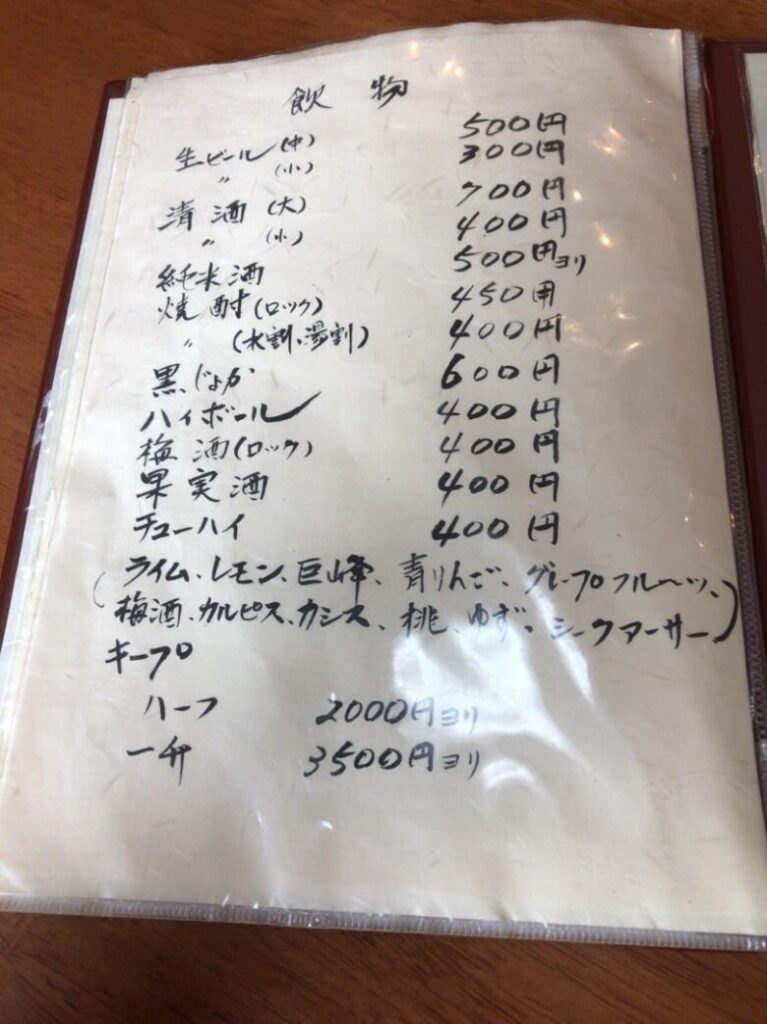 飲物
生ビール(中) 500円
〃 (小) 300円
清酒(大) 700円
〃 (小) 400円
純米酒 500円ヨリ
焼酎(ロック) 450円
〃 (水割・湯割) 400円
黒じょか 600円
ハイボール 400円
梅酒(ロック) 400円
果実酒 400円
チューハイ 400円
(ライム、レモン、巨峰、青りんご、グレープフルーツ、
梅酒、カルピス、カシス、桃、ゆず、シークァーサー)
キープ
ハーフ 2000円ヨリ
一升 3500円ヨリ